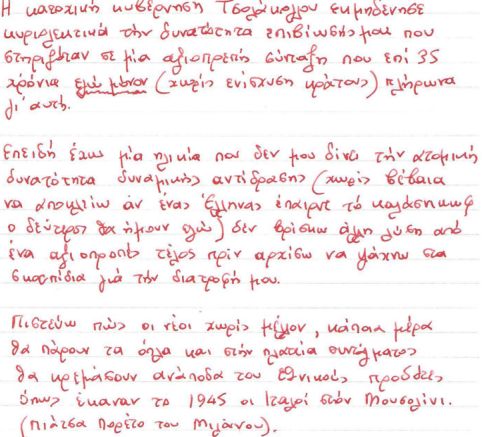 Η κατοχική κυβέρνηση Τσολάκογλου εκμηδένησε
κυριολεκτικά την δυνατότητα επιβίωσής μου που
στηριζόταν σε μία αξιοπρεπή σύνταξη που επί 35
χρόνια εγώ μόνον (χωρίς ενίσχυση κράτους) πλήρωνα
γι' αυτή.
Επειδή έχω μία ηλικία που δεν μου δίνει την ατομική
δυνατότητα δυναμικής αντίδρασης (χωρίς βέβαια
να αποκλείω αν ένας Έλληνας έπαιρνε το καλάσηκωφ
ο δεύτερος θα ήμουν εγώ) δεν βρίσκω άλλη λύση από
ένα αξιοπρεπές τέλος πρίν αρχίσω να ψάχνω στα
σκουπίδια γιά την διατροφή μου.
Πιστεύω πώς οι νέοι χωρίς μέλλον, κάποια μέρα
θα πάρουν τα όπλα και στήν πλατεία συντάγματος
θα κρεμάσουν ανάποδα του εθνικούς προδότες
όπως έκαναν το 1945 οι Ιταλοί στόν Μουσολίνι.
(πιάτσα Πορέτο του Μιλάνου).